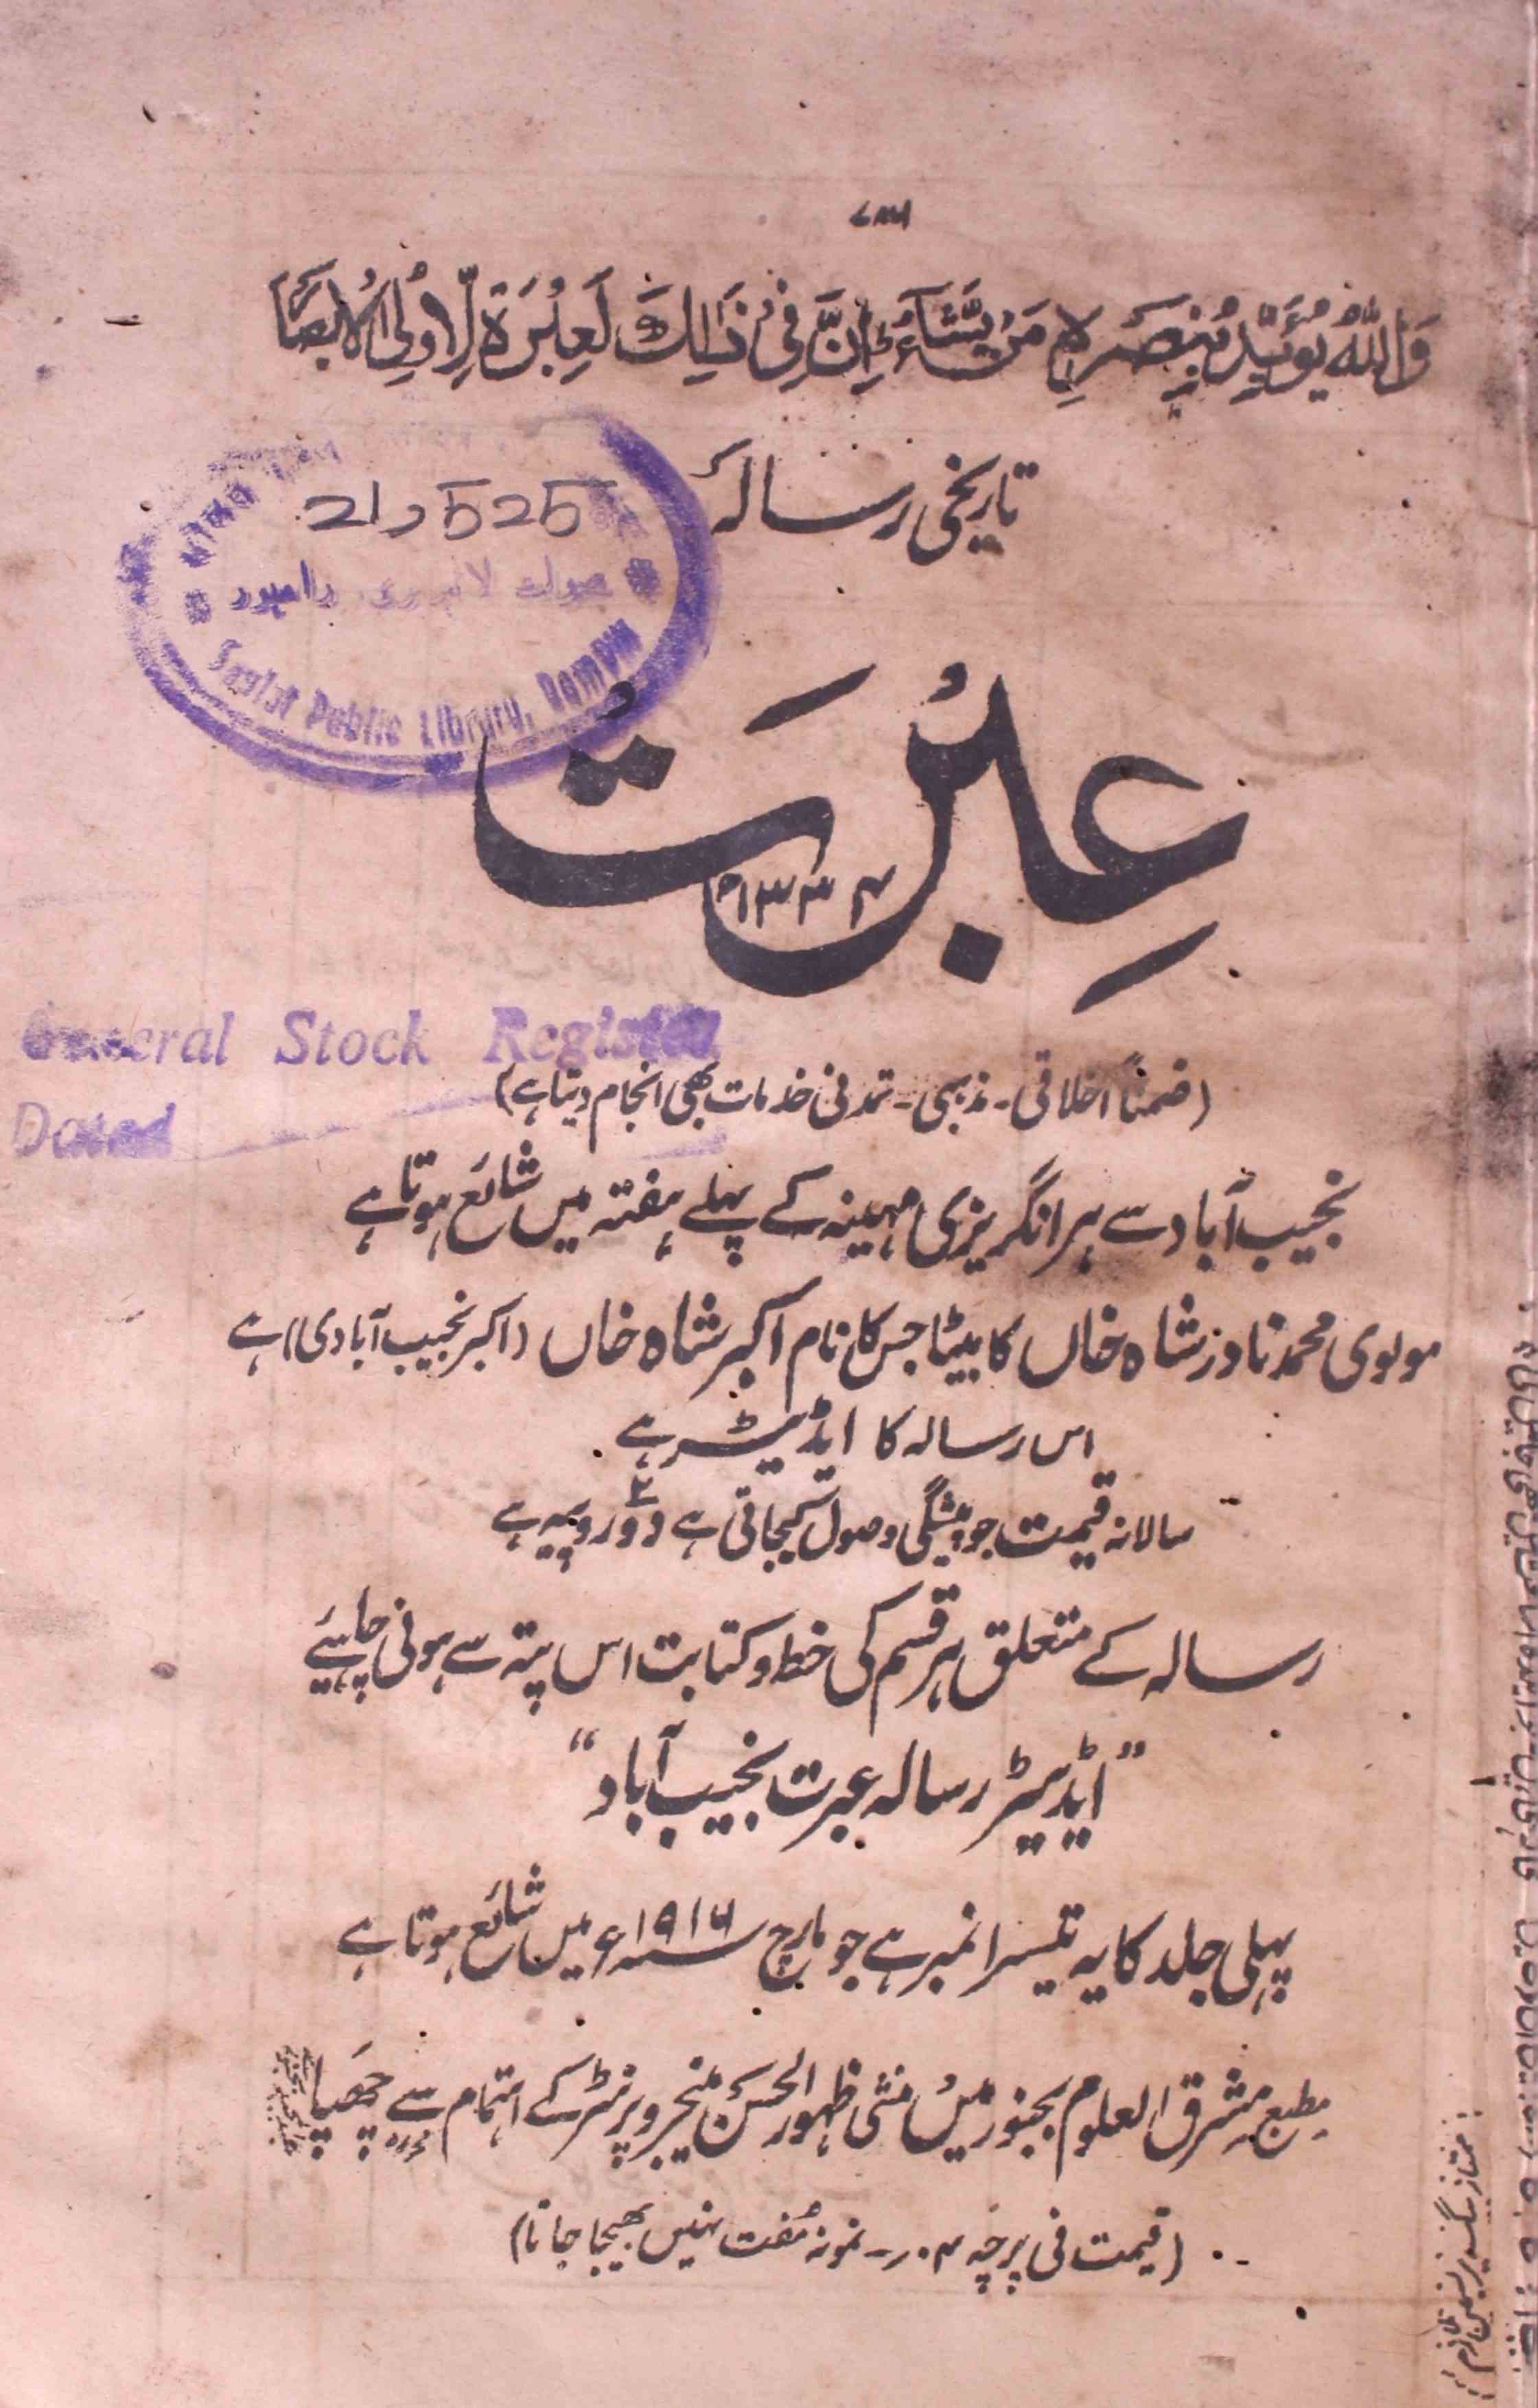 ۷۸۶
وَاللّٰهُ يُؤَيِّدُ بِنَصْرِهٖ مَنْ يَّشَآءُ ؕ اِنَّ فِىْ ذٰلِكَ لَعِبْرَةً لِّاُولِى الْاَبْصَارِ
تاریخی رسالہ
21,525
صولت لائبریری رامپور
Saulat Public Library, Rampur
عِبْرَتْ
۱۳۳۴
General Stock Register
Dated
(ضمناً اخلاقی - مذہبی - تمدنی خدمات بھی انجام دیتا ہے)
نجیب آباد سے ہر انگریزی مہینہ کے پہلے ہفتہ میں شائع ہوتا ہے
مولوی محمد نادر شاہ خاں کا بیٹا جس کا نام اکبر شاہ خاں (اکبر نجیب آبادی) ہے
اس رسالہ کا ایڈیٹر ہے
سالانہ قیمت جو پیشگی وصول کیجاتی ہے دو روپیہ ہے
رسالہ کے متعلق ہر قسم کی خط و کتابت اس پتہ سے ہونی چاہیئے
"ایڈیٹر رسالہ عبرت نجیب آباد"
پہلی جلد کا یہ تیسرا نمبر ہے جو مارچ سنہ ۱۹۱۶ء میں شائع ہوتا ہے
مطبع مشرق العلوم بجنور میں منشی ظہور الحسن منیجر و پرنٹر کے اہتمام سے چھپا
(قیمت فی پرچہ ۴ر - نمونہ مفت نہیں بھیجا جاتا)